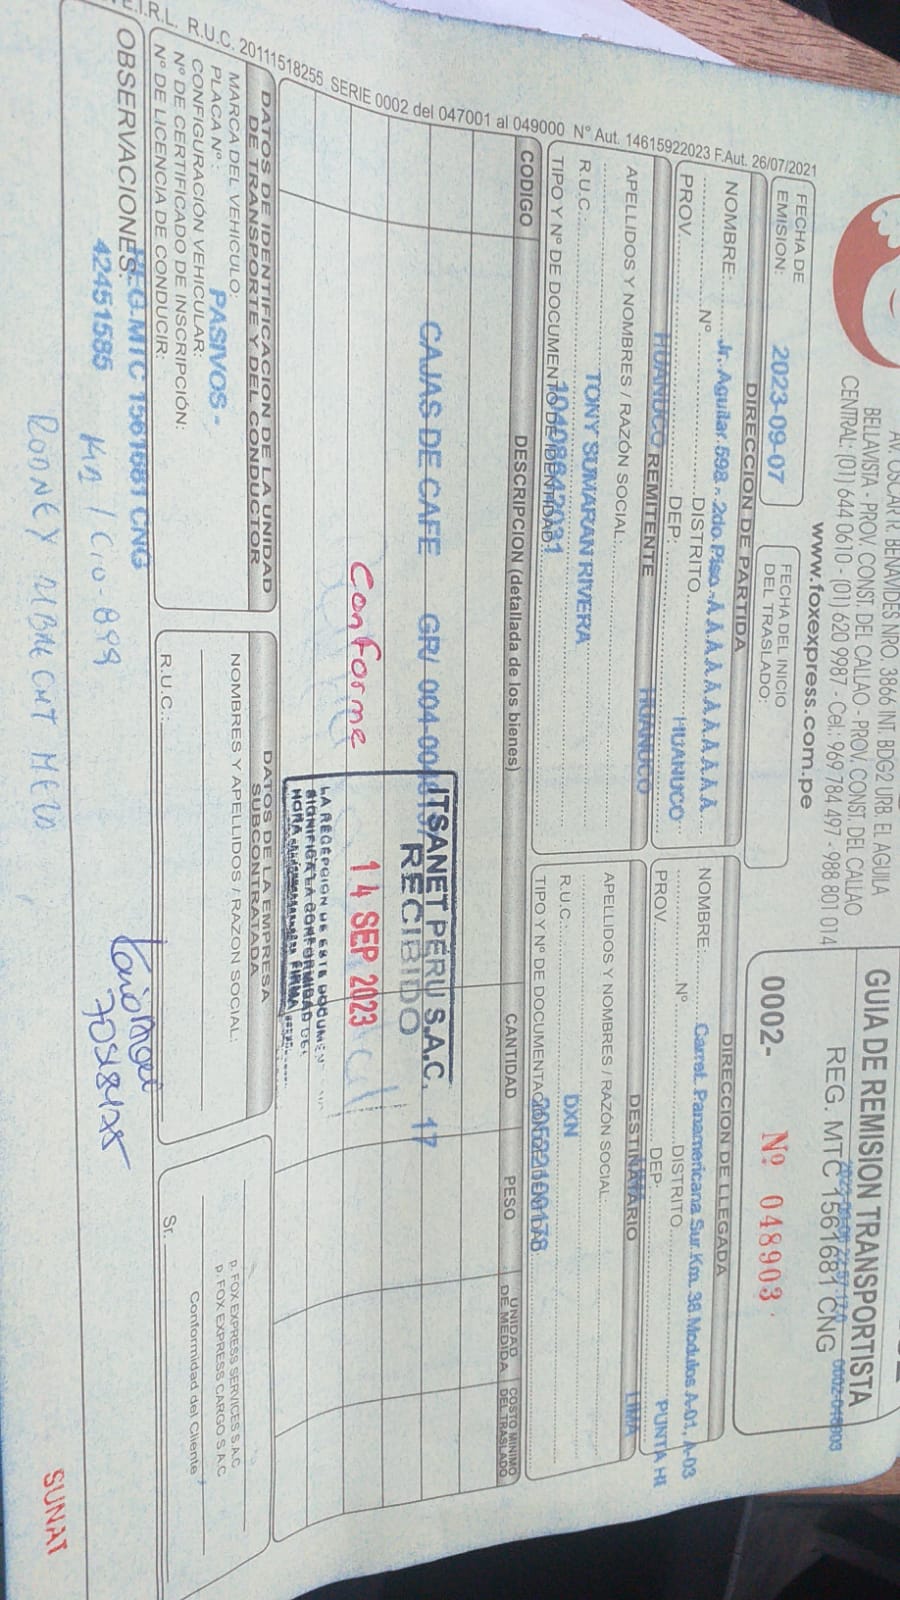 AV. OSCAR R. BENAVIDES NRO. 3866 INT. BDG2 URB. EL AGUILA
BELLAVISTA - PROV. CONST. DEL CALLAO - PROV. CONST. DEL CALLAO
CENTRAL: (01) 644 0610 - (01) 620 9987 - Cel.: 969 784 497 - 988 801 014
www.foxexpress.com.pe
GUIA DE REMISION TRANSPORTISTA
REG. MTC 1561681 CNG
0002-048903
0002- Nº 048903
FECHA DE EMISION: 2023-09-07
FECHA DEL INICIO DEL TRASLADO:
DIRECCION DE PARTIDA
NOMBRE: Jr. Aguilar 592 - 2do. Piso - A A A A A A A A A A
Nº DISTRITO HUANUCO
PROV. HUANUCO DEP: HUANUCO
DIRECCION DE LLEGADA
NOMBRE: Carret. Panamericana Sur Km. 38 Modulos A-01, A-03
Nº DISTRITO PUNTA HE
PROV. DEP: LIMA
REMITENTE
APELLIDOS Y NOMBRES / RAZÓN SOCIAL:
TONY SUMARAN RIVERA
R.U.C.
TIPO Y Nº DE DOCUMENTO DE IDENTIDAD:
DESTINATARIO
APELLIDOS Y NOMBRES / RAZÓN SOCIAL:
DXN
R.U.C.
TIPO Y Nº DE DOCUMENTACIÓN DE IDENTIDAD:
CODIGO
DESCRIPCION (detallada de los bienes)
CANTIDAD
PESO
UNIDAD DE MEDIDA
COSTO MINIMO DEL TRASLADO
CAJAS DE CAFE GR/ 004-004 17
Conforme
ITSANET PERU S.A.C.
RECIBIDO
14 SEP 2023
LA RECEPCION DE ESTE DOCUMEN
SIGNIFICA LA CONFORMIDAD DEL
HORA FIRMA
DATOS DE IDENTIFICACION DE LA UNIDAD
DE TRANSPORTE Y DEL CONDUCTOR
MARCA DEL VEHICULO:
PLACA Nº: PASIVOS -
CONFIGURACIÓN VEHICULAR:
Nº DE CERTIFICADO DE INSCRIPCIÓN:
Nº DE LICENCIA DE CONDUCIR:
DATOS DE LA EMPRESA
SUBCONTRATADA
NOMBRES Y APELLIDOS / RAZON SOCIAL:
R.U.C.:
p. FOX EXPRESS SERVICES S.A.C
p. FOX EXPRESS CARGO S.A.C
Conformidad del Cliente
Sr.
OBSERVACIONES:
REG.MTC 1561681 CNG
42451585
SUNAT
E.I.R.L. R.U.C. 20111518255 SERIE 0002 del 047001 al 049000 Nº Aut. 14615922023 F.Aut. 26/07/2021